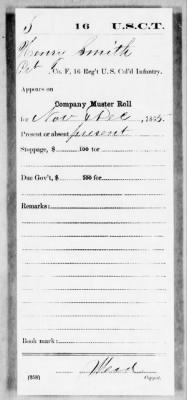 S 16 U.S.C.T.
Henry Smith
Pvt, Co. F, 16 Reg't U. S. Col'd Infantry.
Appears on
Company Muster Roll
for Nov & Dec, 1865.
Present or absent present
Stoppage, $ 100 for
Due Gov't, $ 100 for
Remarks:
Book mark:
Wead
(358) Copyist.